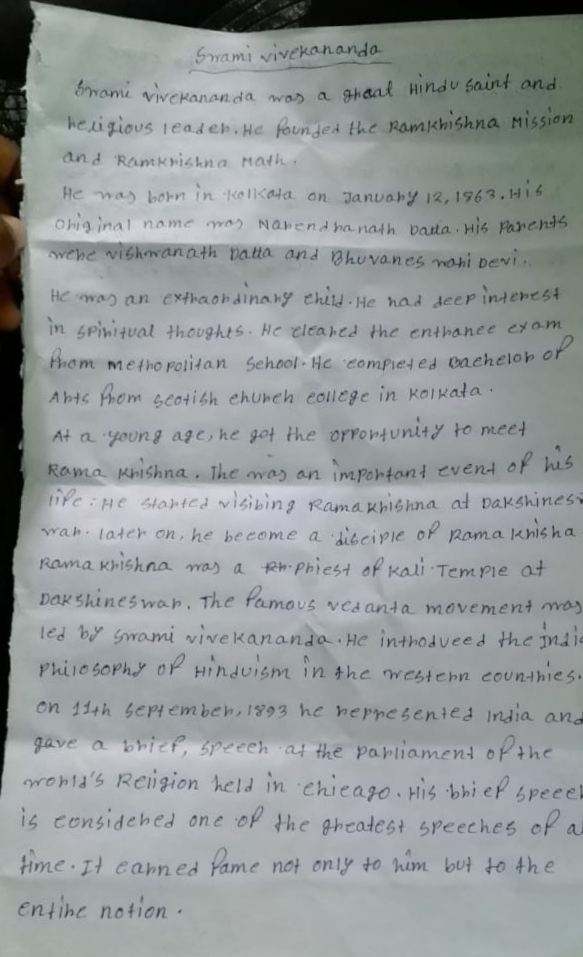 Swami vivekananda
Swami vivekananda was a great Hindu saint and
religious leader. He founded the Ramkrishna Mission
and Ramkrishna Math.
He was born in Kolkata on January 12, 1863. His
original name was Narendranath Datta. His Parents
were vishwanath Datta and Bhuvanes wari Devi.
He was an extraordinary child. He had deep interest
in spiritual thoughts. He cleared the entrance exam
from metropolitan school. He completed Bachelor of
Arts from scotish church college in Kolkata.
At a young age, he got the opportunity to meet
Rama Krishna. The was an important event of his
life: He started visibing Ramakrishna at Dakshines
war. later on, he become a disciple of Rama Krisha
Rama Krishna was a priest of Kali Temple at
Dakshineswar. The famous vedanta movement was
led by swami vivekananda. He introduced the Indi
philosophy of Hinduism in the western countries.
on 11th september, 1893 he represented India and
gave a brief, speech at the parliament of the
world's Religion held in chicago. His brief speec
is considered one of the greatest speeches of a
time. It earned fame not only to him but to the
entire notion.